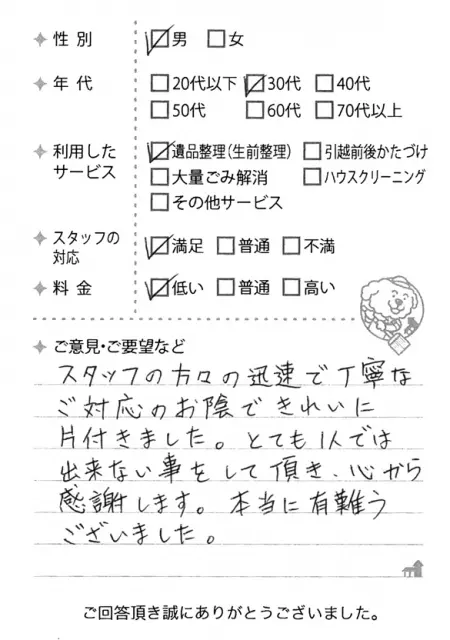 性別 ☑男 □女
年代 □20代以下 ☑30代 □40代
□50代 □60代 □70代以上
利用したサービス ☑遺品整理(生前整理) □引越前後かたづけ
□大量ごみ解消 □ハウスクリーニング
□その他サービス
スタッフの対応 ☑満足 □普通 □不満
料金 ☑低い □普通 □高い
ご意見・ご要望など
スタッフの方々の迅速で丁寧な
ご対応のお陰できれいに
片付きました。とても1人では
出来ない事をして頂き、心から
感謝します。本当に有難う
ございました。
ご回答頂き誠にありがとうございました。